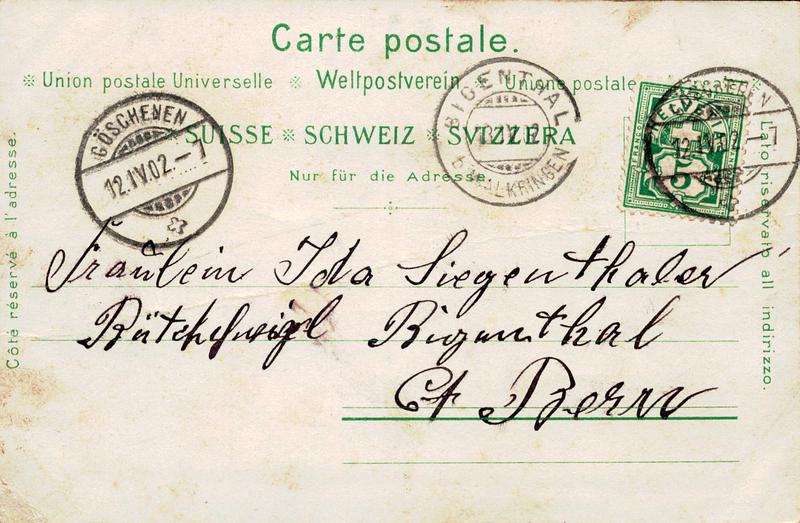 Carte postale.
※ Union postale Universelle ※ Weltpostverein ※ Unione postale
SUISSE ※ SCHWEIZ ※ SVIZZERA
Nur für die Adresse.
Côté réservé à l'adresse.
Lato riservato all indirizzo.
GÖSCHENEN
12.IV.02.–7
BIGENTHAL
b. WALKRINGEN
12.IV.02.
HELVETIA
5
Fräulein Ida Siegenthaler
Bigenthal
Ct. Bern